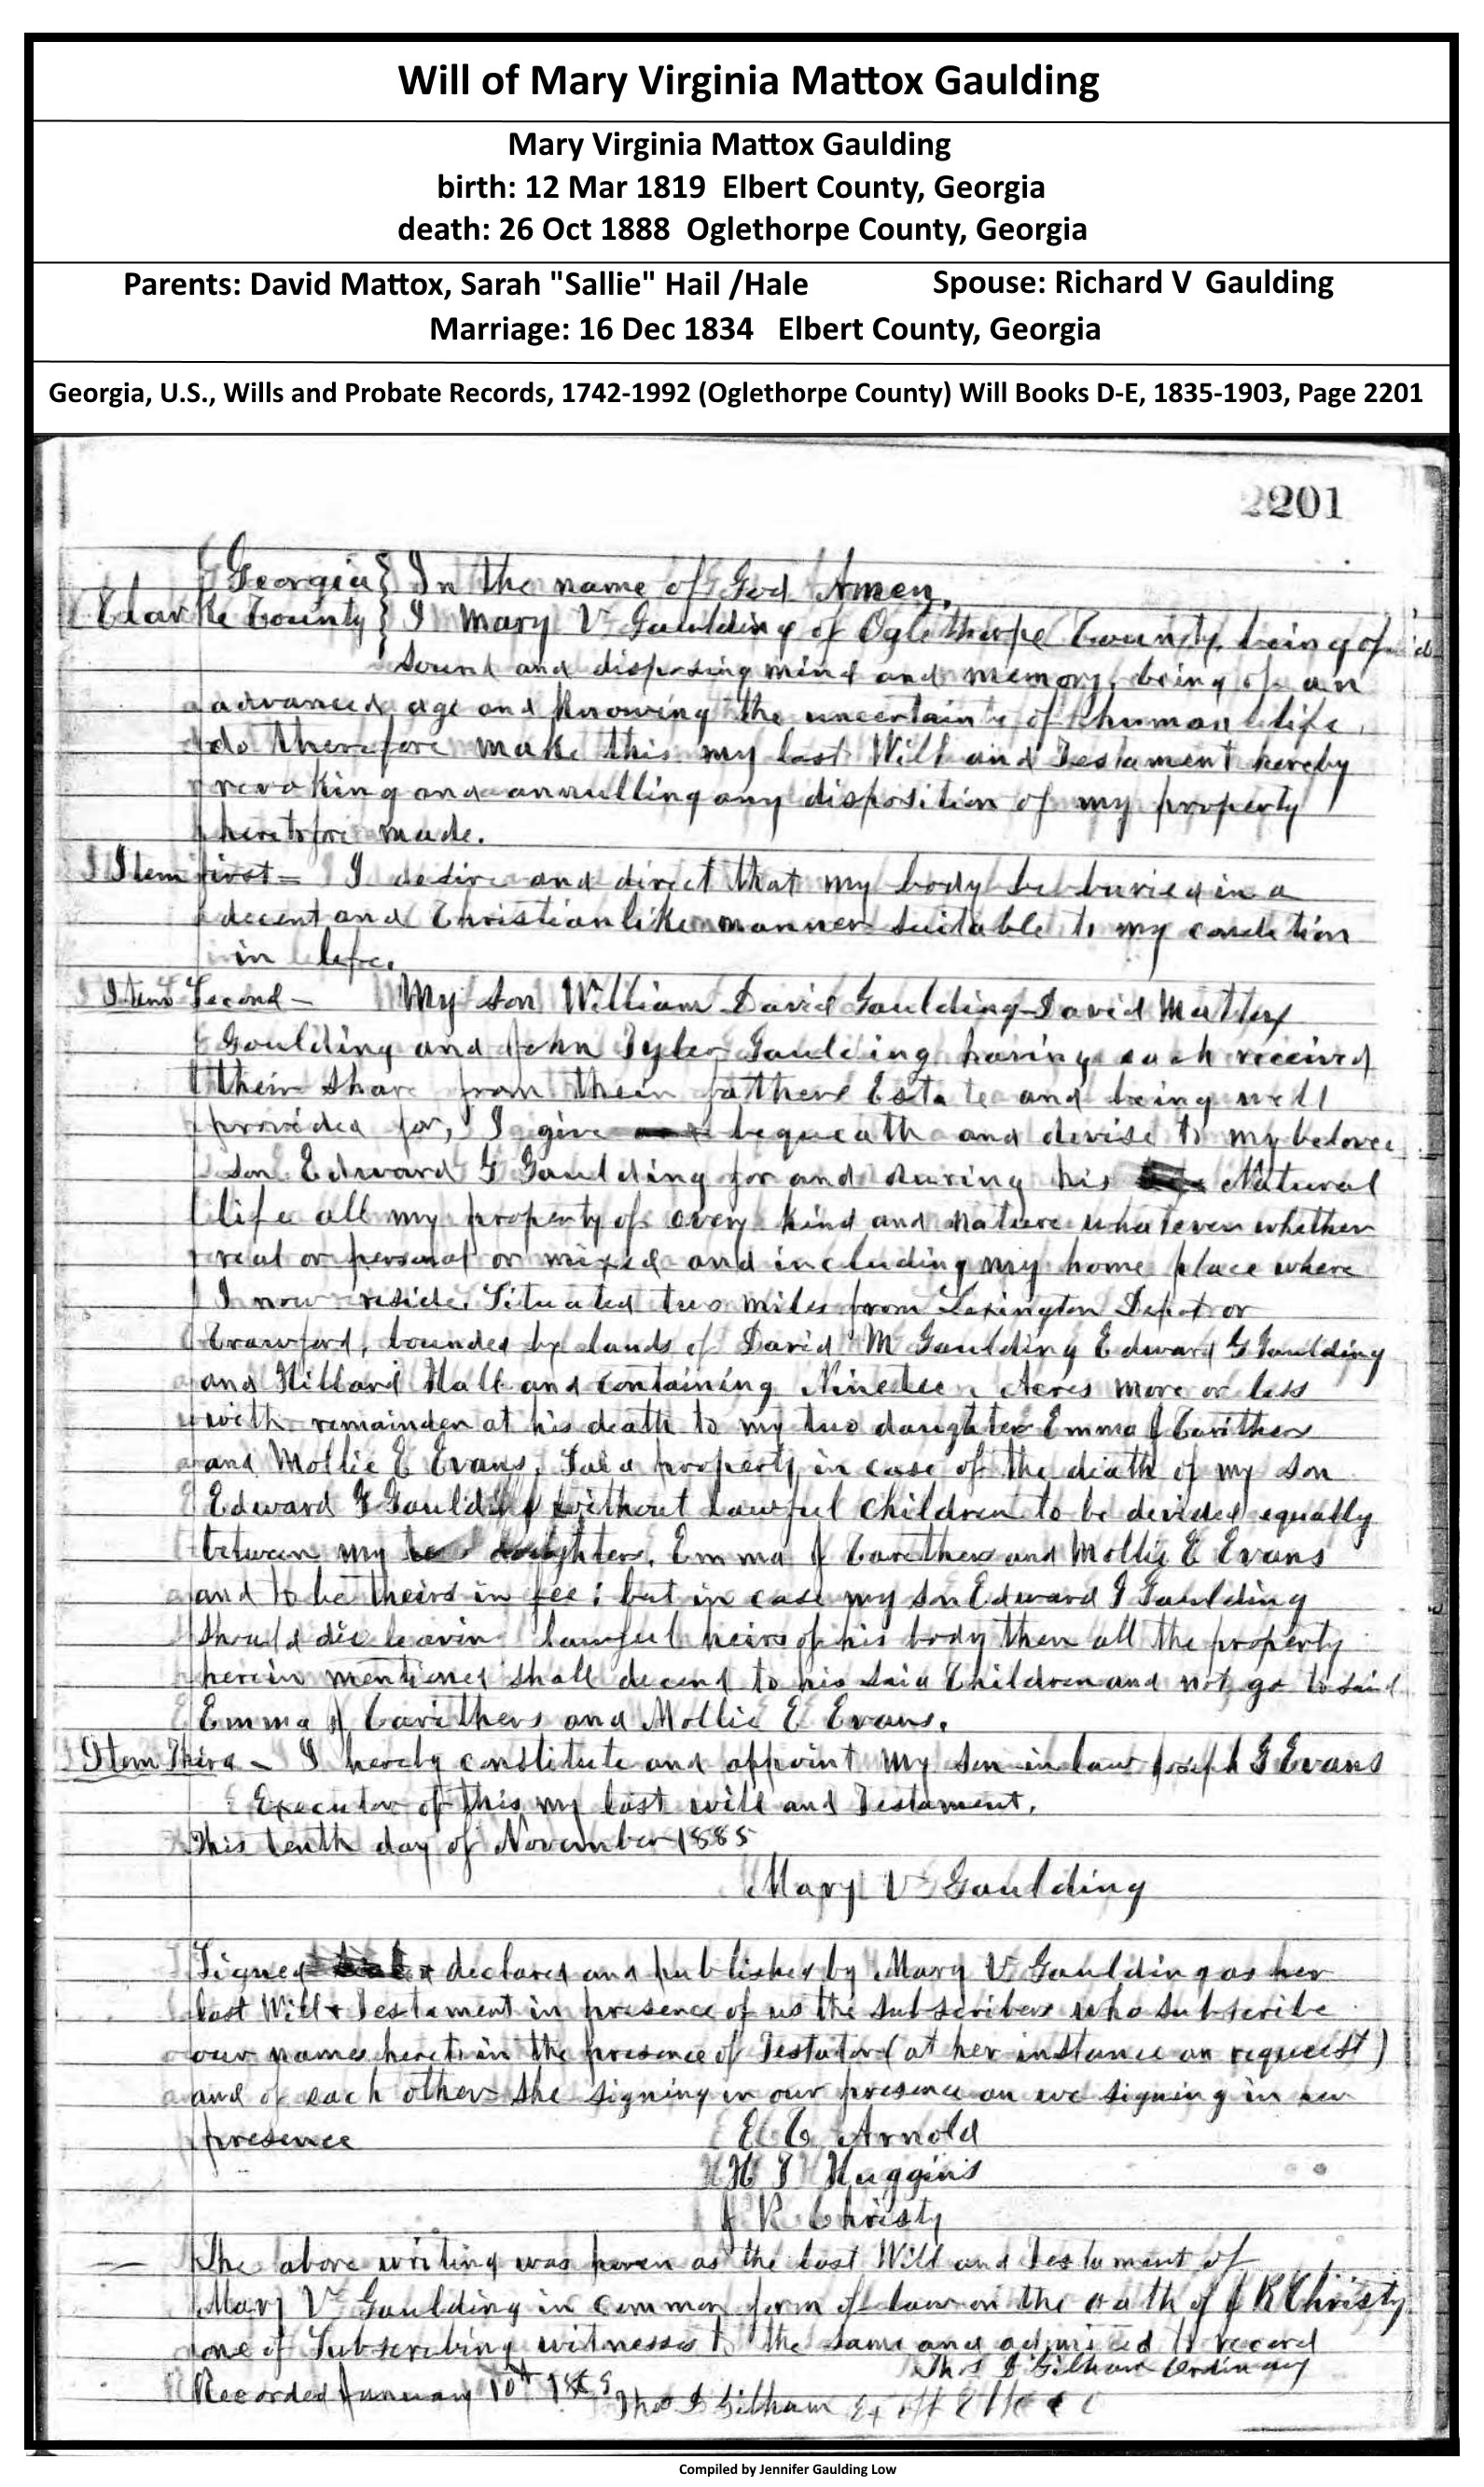 Will of Mary Virginia Mattox Gaulding
Mary Virginia Mattox Gaulding
birth: 12 Mar 1819  Elbert County, Georgia
death: 26 Oct 1888  Oglethorpe County, Georgia
Parents: David Mattox, Sarah "Sallie" Hail /Hale Spouse: Richard V Gaulding
Marriage: 16 Dec 1834 Elbert County, Georgia
Georgia, U.S., Wills and Probate Records, 1742-1992 (Oglethorpe County) Will Books D-E, 1835-1903, Page 2201
2201
Georgia } In the name of God Amen,
Clarke County } I Mary V Gaulding of Oglethorpe County, being of
sound and disposing mind and memory, being of an
advanced age and knowing the uncertainty of human life
do therefore make this my last Will and Testament hereby
revoking and annulling any disposition of my property
heretofore made.
Item first – I desire and direct that my body be buried in a
decent and Christian like manner suitable to my condition
in life.
Item Second – My son William David Gaulding David Mattox
Goulding and John Tyler Gaulding having each received
their share from their fathers Estate and being well
provided for, I give bequeath and devise to my beloved
son Edward G Gaulding for and during his Natural
life all my property of every kind and nature whatever whether
real or personal or mixed and including my home place where
I now reside. Situated two miles from Lexington Depot or
Crawford, bounded by lands of David M Gaulding Edward G Gaulding
and Hillard Hall and containing Nineteen Acres more or less
with remainder at his death to my two daughters Emma J Carithers
and Mollie E Evans. Said property in case of the death of my son
Edward G Gaulding without lawful children to be divided equally
between my daughters, Emma J Carithers and Mollie E Evans
and to be theirs in fee; but in case my son Edward G Gaulding
should die leavin lawful heirs of his body then all the property
herein mentioned shall decend to his said Children and not go to said
Emma J Carithers and Mollie E Evans.
Item Third – I hereby constitute and appoint my son-in-law Joseph G Evans
Executor of this my last will and Testament.
This tenth day of November 1885
Mary V Gaulding
Signed declared and published by Mary V Gaulding as her
last Will & Testament in presence of us the subscribers who subscribe
our names hereto in the presence of Testator (at her instance an request)
and of each other she signing in our presence an we signing in her
presence E C Arnold
H T Huggins
J R Christy
The above writing was proven as the last Will and Testament of
Mary V Gaulding in common form of law on the oath of J R Christy
one of Subscribing witnesses to the same and admitted to record
Thos Gilham Ordinary
Recorded January 10th Thos Gilham Ex off
Compiled by Jennifer Gaulding Low